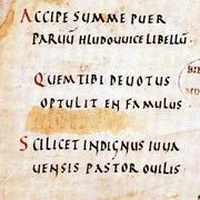 ACCIPE SUMME PUER
PARUŪ HLUDOUUICE LIBELLŪ
QUEM TIBI DEUOTUS
OPTULIT EN FAMULUS
SCILICET INDIGNUS IUUA
UENSIS PASTOR OUILIS